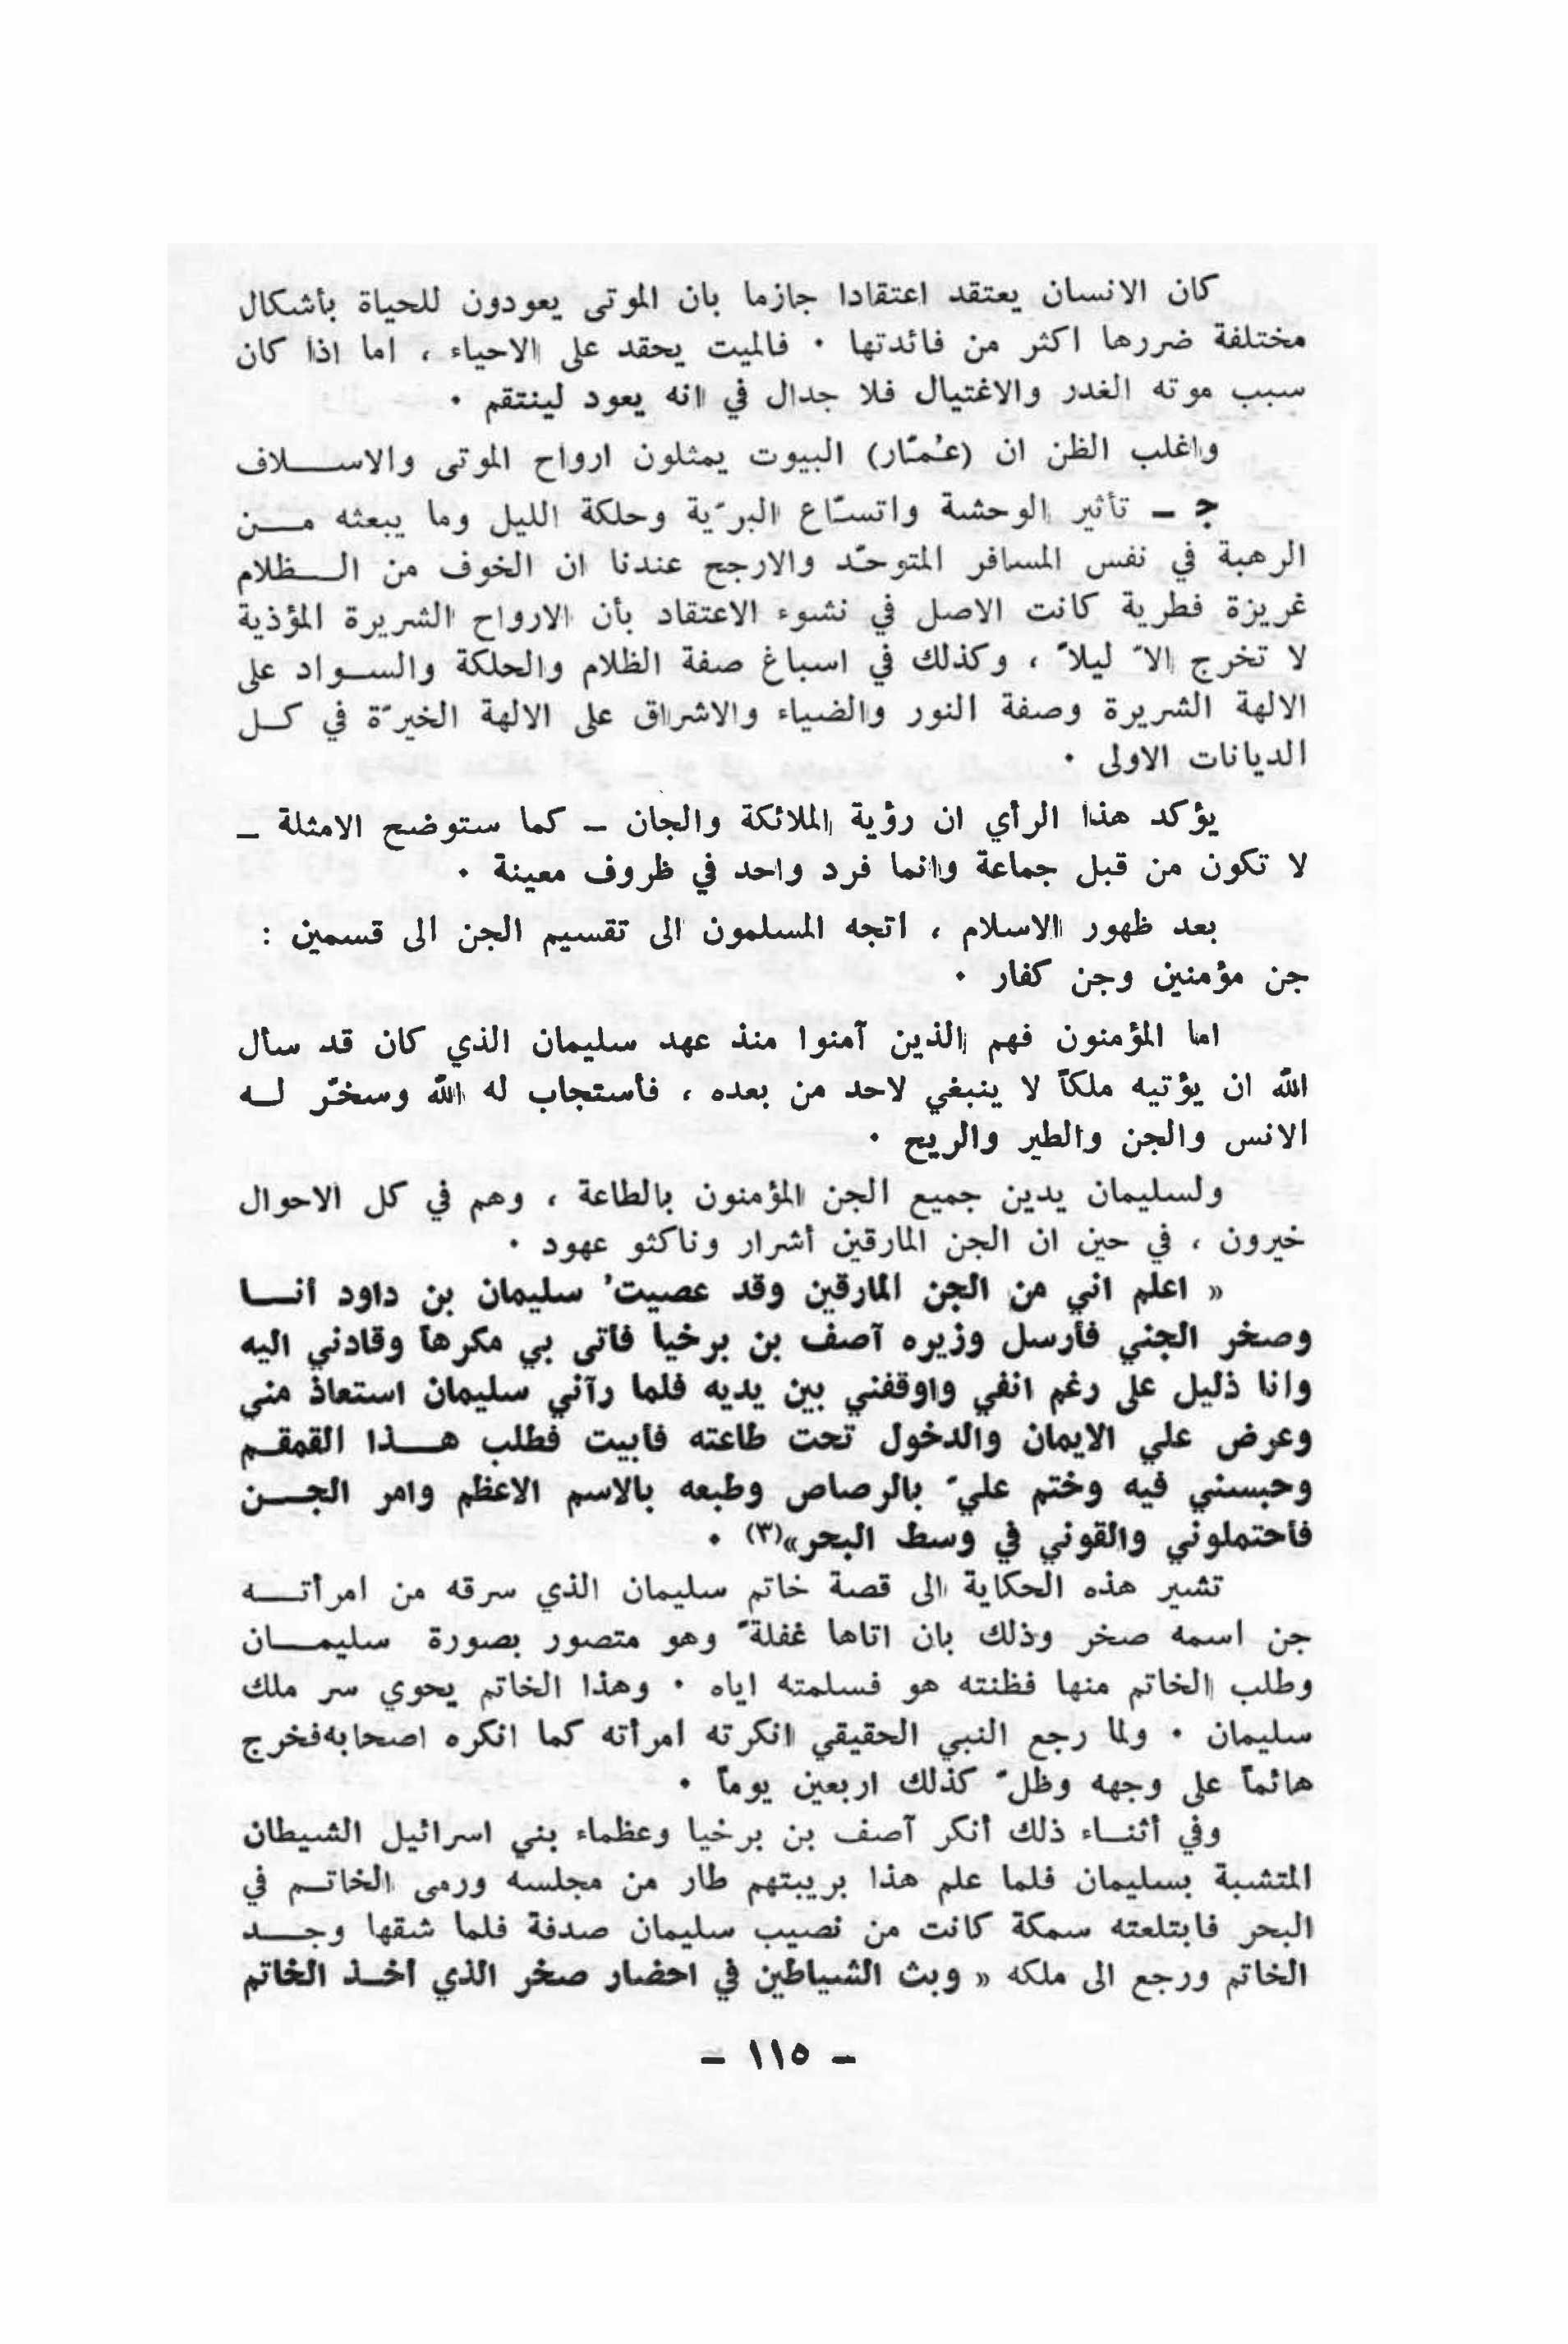 كان الانسان يعتقد اعتقادا جازما بان الموتى يعودون للحياة بأشكال
مختلفة ضررها اكثر من فائدتها ٠ فالميت يحقد على الاحياء ، اما اذا كان
سبب موته الغدر والاغتيال فلا جدال في انه يعود لينتقم ٠
واغلب الظن ان (عُمّار) البيوت يمثلون ارواح الموتى والاسلاف
جـ ـ تأثير الوحشة واتسّاع البرّية وحلكة الليل وما يبعثه من
الرهبة في نفس المسافر المتوحّد والارجح عندنا ان الخوف من الظلام
غريزة فطرية كانت الاصل في نشوء الاعتقاد بأن الارواح الشريرة المؤذية
لا تخرج الاّ ليلاً ، وكذلك في اسباغ صفة الظلام والحلكة والسواد على
الالهة الشريرة وصفة النور والضياء والاشراق على الالهة الخيرّة في كل
الديانات الاولى ٠
يؤكد هذا الرأي ان رؤية الملائكة والجان ـ كما ستوضح الامثلة ـ
لا تكون من قبل جماعة وانما فرد واحد في ظروف معينة ٠
بعد ظهور الاسلام ، اتجه المسلمون الى تقسيم الجن الى قسمين :
جن مؤمنين وجن كفار ٠
اما المؤمنون فهم الذين آمنوا منذ عهد سليمان الذي كان قد سأل
الله ان يؤتيه ملكاً لا ينبغي لاحد من بعده ، فأستجاب له الله وسخّر له
الانس والجن والطير والريح ٠
ولسليمان يدين جميع الجن المؤمنون بالطاعة ، وهم في كل الاحوال
خيرون ، في حين ان الجن المارقين أشرار وناكثو عهود ٠
« اعلم اني من الجن المارقين وقد عصيتُ سليمان بن داود أنا
وصخر الجني فأرسل وزيره آصف بن برخيا فأتى بي مكرهاً وقادني اليه
وانا ذليل على رغم انفي واوقفني بين يديه فلما رآني سليمان استعاذ مني
وعرض علي الايمان والدخول تحت طاعته فأبيت فطلب هذا القمقم
وحبسني فيه وختم عليّ بالرصاص وطبعه بالاسم الاعظم وامر الجن
فأحتملوني والقوني في وسط البحر»(٣) ٠
تشير هذه الحكاية الى قصة خاتم سليمان الذي سرقه من امرأته
جن اسمه صخر وذلك بان اتاها غفلةً وهو متصور بصورة سليمان
وطلب الخاتم منها فظنته هو فسلمته اياه ٠ وهذا الخاتم يحوي سر ملك
سليمان ٠ ولما رجع النبي الحقيقي انكرته امرأته كما انكره اصحابه فخرج
هائماً على وجهه وظلّ كذلك اربعين يوماً ٠
وفي أثناء ذلك أنكر آصف بن برخيا وعظماء بني اسرائيل الشيطان
المتشبة بسليمان فلما علم هذا بريبتهم طار من مجلسه ورمى الخاتم في
البحر فابتلعته سمكة كانت من نصيب سليمان صدفة فلما شقها وجد
الخاتم ورجع الى ملكه « وبث الشياطين في احضار صخر الذي أخذ الخاتم
ـ ١١٥ ـ